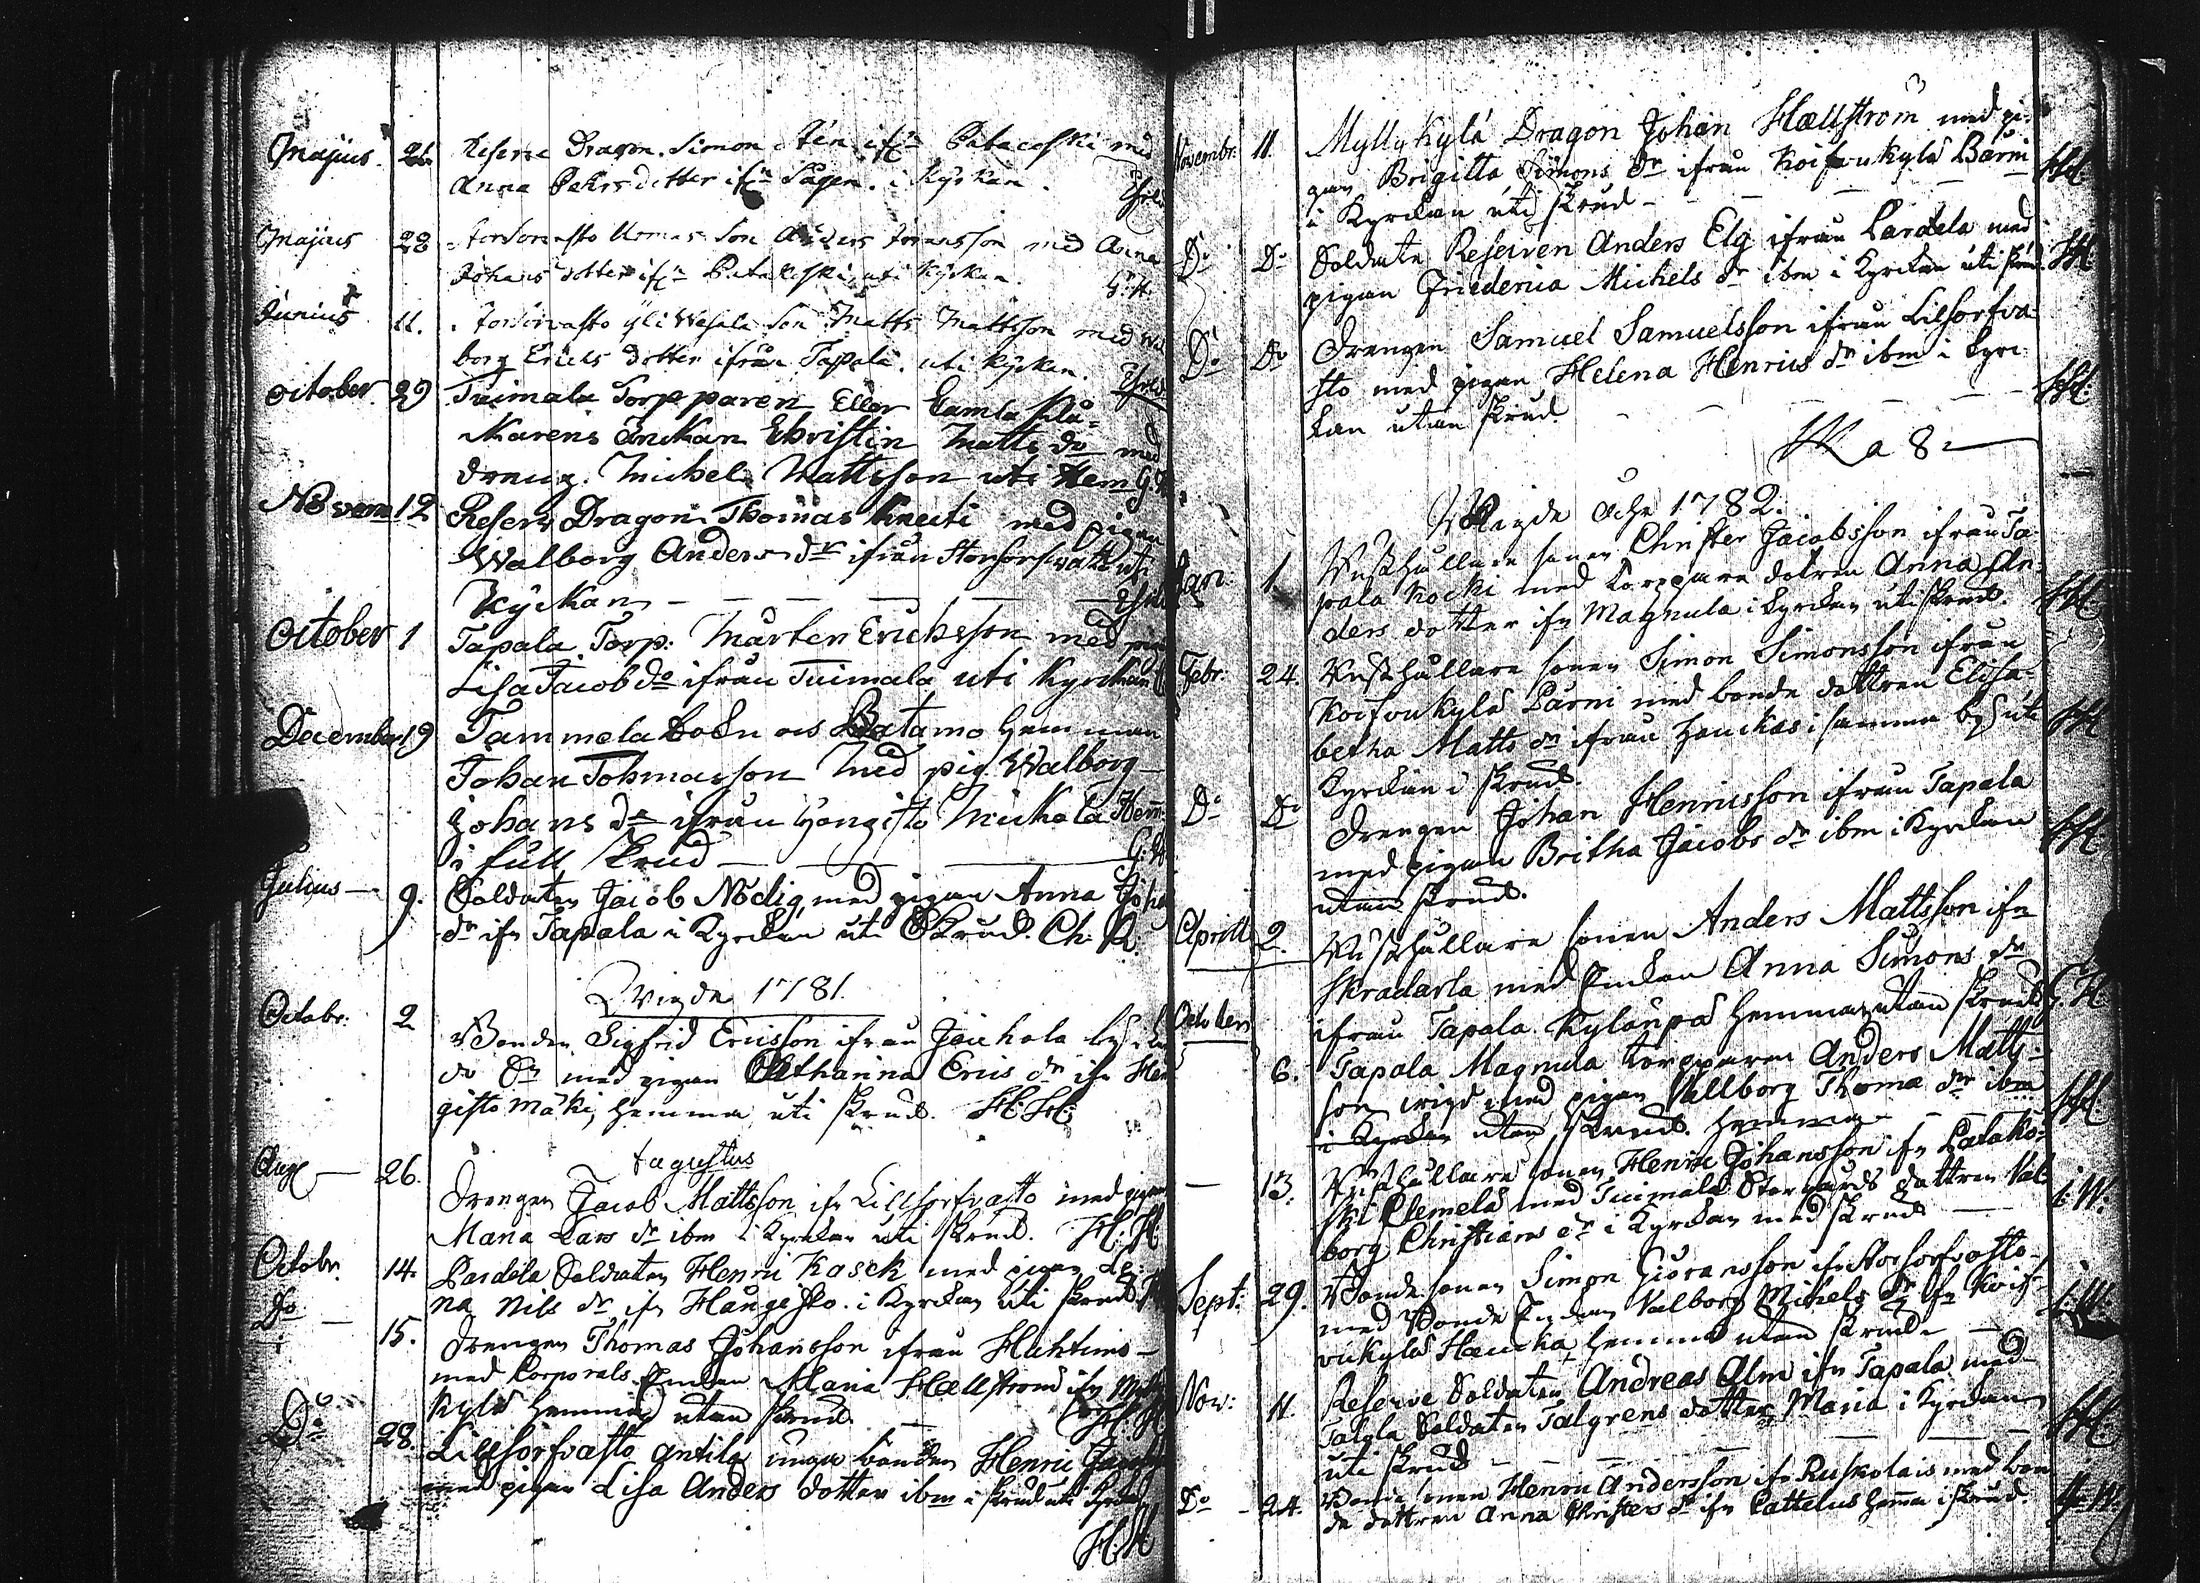 Majus. 21. Reserve Dragon. Simon Sten ifn Patacoski med
Anna Pehrs dotter ifn Sågen. i Kyrkan.
Majus 28 Storsorvasto Uomas Son Anders Joransson med Anna
Johans dotter ifn Patakoski uti Kyrkan. G. H.
Junius 11. Storsorvasto yli Wesala Son Matts Mattsson med Wal
borg Erics dotter ifrån Tapala. uti kyrkan.
October 29 Tuimala Torpparen Eller Gamla Klå-
karens änckan Christin Matts do med
dreng. Michel Mattsson uti Hem G. H
Novem 12 Reserv Dragon Thomas Knecti med pigan
Walborg Anders dr ifrån Storsorfwasto uti
Kyrkan
October 1 Tapala Torp: Mårten Erichsson med pig
Lisa Jacob do ifrån Tuimala uti Kyrckan
December 19 Tammela Sokn os Batamo Hemman
Johan Tohmasson Med pig Walborg
Johans dr ifrån Hongisto Mickala Hem.
i full skrud G. H
Julius 9. Soldaten Jacob Nödig med pigan Anna Joha
dr ifn Tapala i Kyrckan uti Skrud. Ch. R.
Wigde 1781.
Octobr. 2 Bonden Sigfrid Ericsson ifrån Jackala by
do Sn med pigan Catharina Erics dr ifn Hon
gisto Mäki, hemma uti skrud. H. H.
Augustus
Aug 26. Drengen Jacob Mattsson ifn Lillsorfvasto med pigan
Maria Lars dr ibm i Kyrckan uti skrud. H. H
Octobr. 14. Pardela Soldaten Henric Kasck med pigan Le-
na Nils dr ifn Hångisto i Kyrckan uti skrud
Do 15. Drengen Thomas Johansson ifrån Huhtimo
med Corporals Enckan Maria Hællstrom ifn Mylly
kylä hemma utan skrud. H. H
Do 28. Lillsorfvasto antila unga bonden Henric Jacobs
med pigan Lisa Anders dotter ibm i skrud uti Kyrckan
H. H
Novembr. 11. Myllykylä Dragon Johan Hællström med pi-
gan Brigitta Simons dr ifrån Koifvukylä Bärni
i Kyrckan uti skrud - H.H.
Do Do Soldate Reserven Anders Elg ifrån Pardela med
pigan Friederica Michels dr ibm i Kyrckan uti skrud. H.H.
Do Do Drengen Samuel Samuelsson ifrån Lilsorfva-
sto med pigan Helena Henrics dr ibm i Kyrc-
kan utan skrud. H.H.
Wigde Åhr 1782.
Jan. 1 Rusthållare sonen Christer Jacobsson ifrån Ta-
pala Kocki med torppare dotren Anna An-
ders dotter ifn Magnula i Kyrckan uti skrud. H.H.
Febr. 24. Rusthållare sonen Simon Simonsson ifrån
Koifvukylä Pärni med bonde dottren Elisa-
betha Matts dr ifrån Hauckas i samma by uti
Kyrckan i skrud. H.H.
Do Do Drengen Johan Henricsson ifrån Tapala
med pigan Britha Jacobs dr ibm i Kyrckan
utan skrud. H.H.
Aprill 2. Rusthållare sonen Anders Mattsson ifn
Skradarla med Enckan Anna Simons dr
ifrån Tapala Kylänpä hemma utan skrud G. H.
October 6. Tapala Magnula torpparen Anders Matts-
son wigd med pigan Vallborg Thomæ dr ibm
i Kyrckan utan skrud. hemma H.H.
- 13. Rusthållare sonen Henric Johansson ifn Patako-
ski Clemelä med Tuimala Storgårds dottren Val-
borg Christians dr i Kyrckan med skrud
Sept. 29. Bonde sonen Simon Giöransson ifn Storsorfvasto
med Bonde Enckan Valborg Michels dr ifn Koif-
vukylä Haucka hemma utan skrud
Nov: 11. Reserve Soldaten Andreas Alm ifn Tapala med
Talgla Soldaten Talgrens dotter Maria i Kyrckan
uti skrud H.H.
Do - 24. Bonde sonen Henric Andersson ifn Ruskolais med bon
de dottren Anna Christers dr ifn Cattelus hemma i skrud.